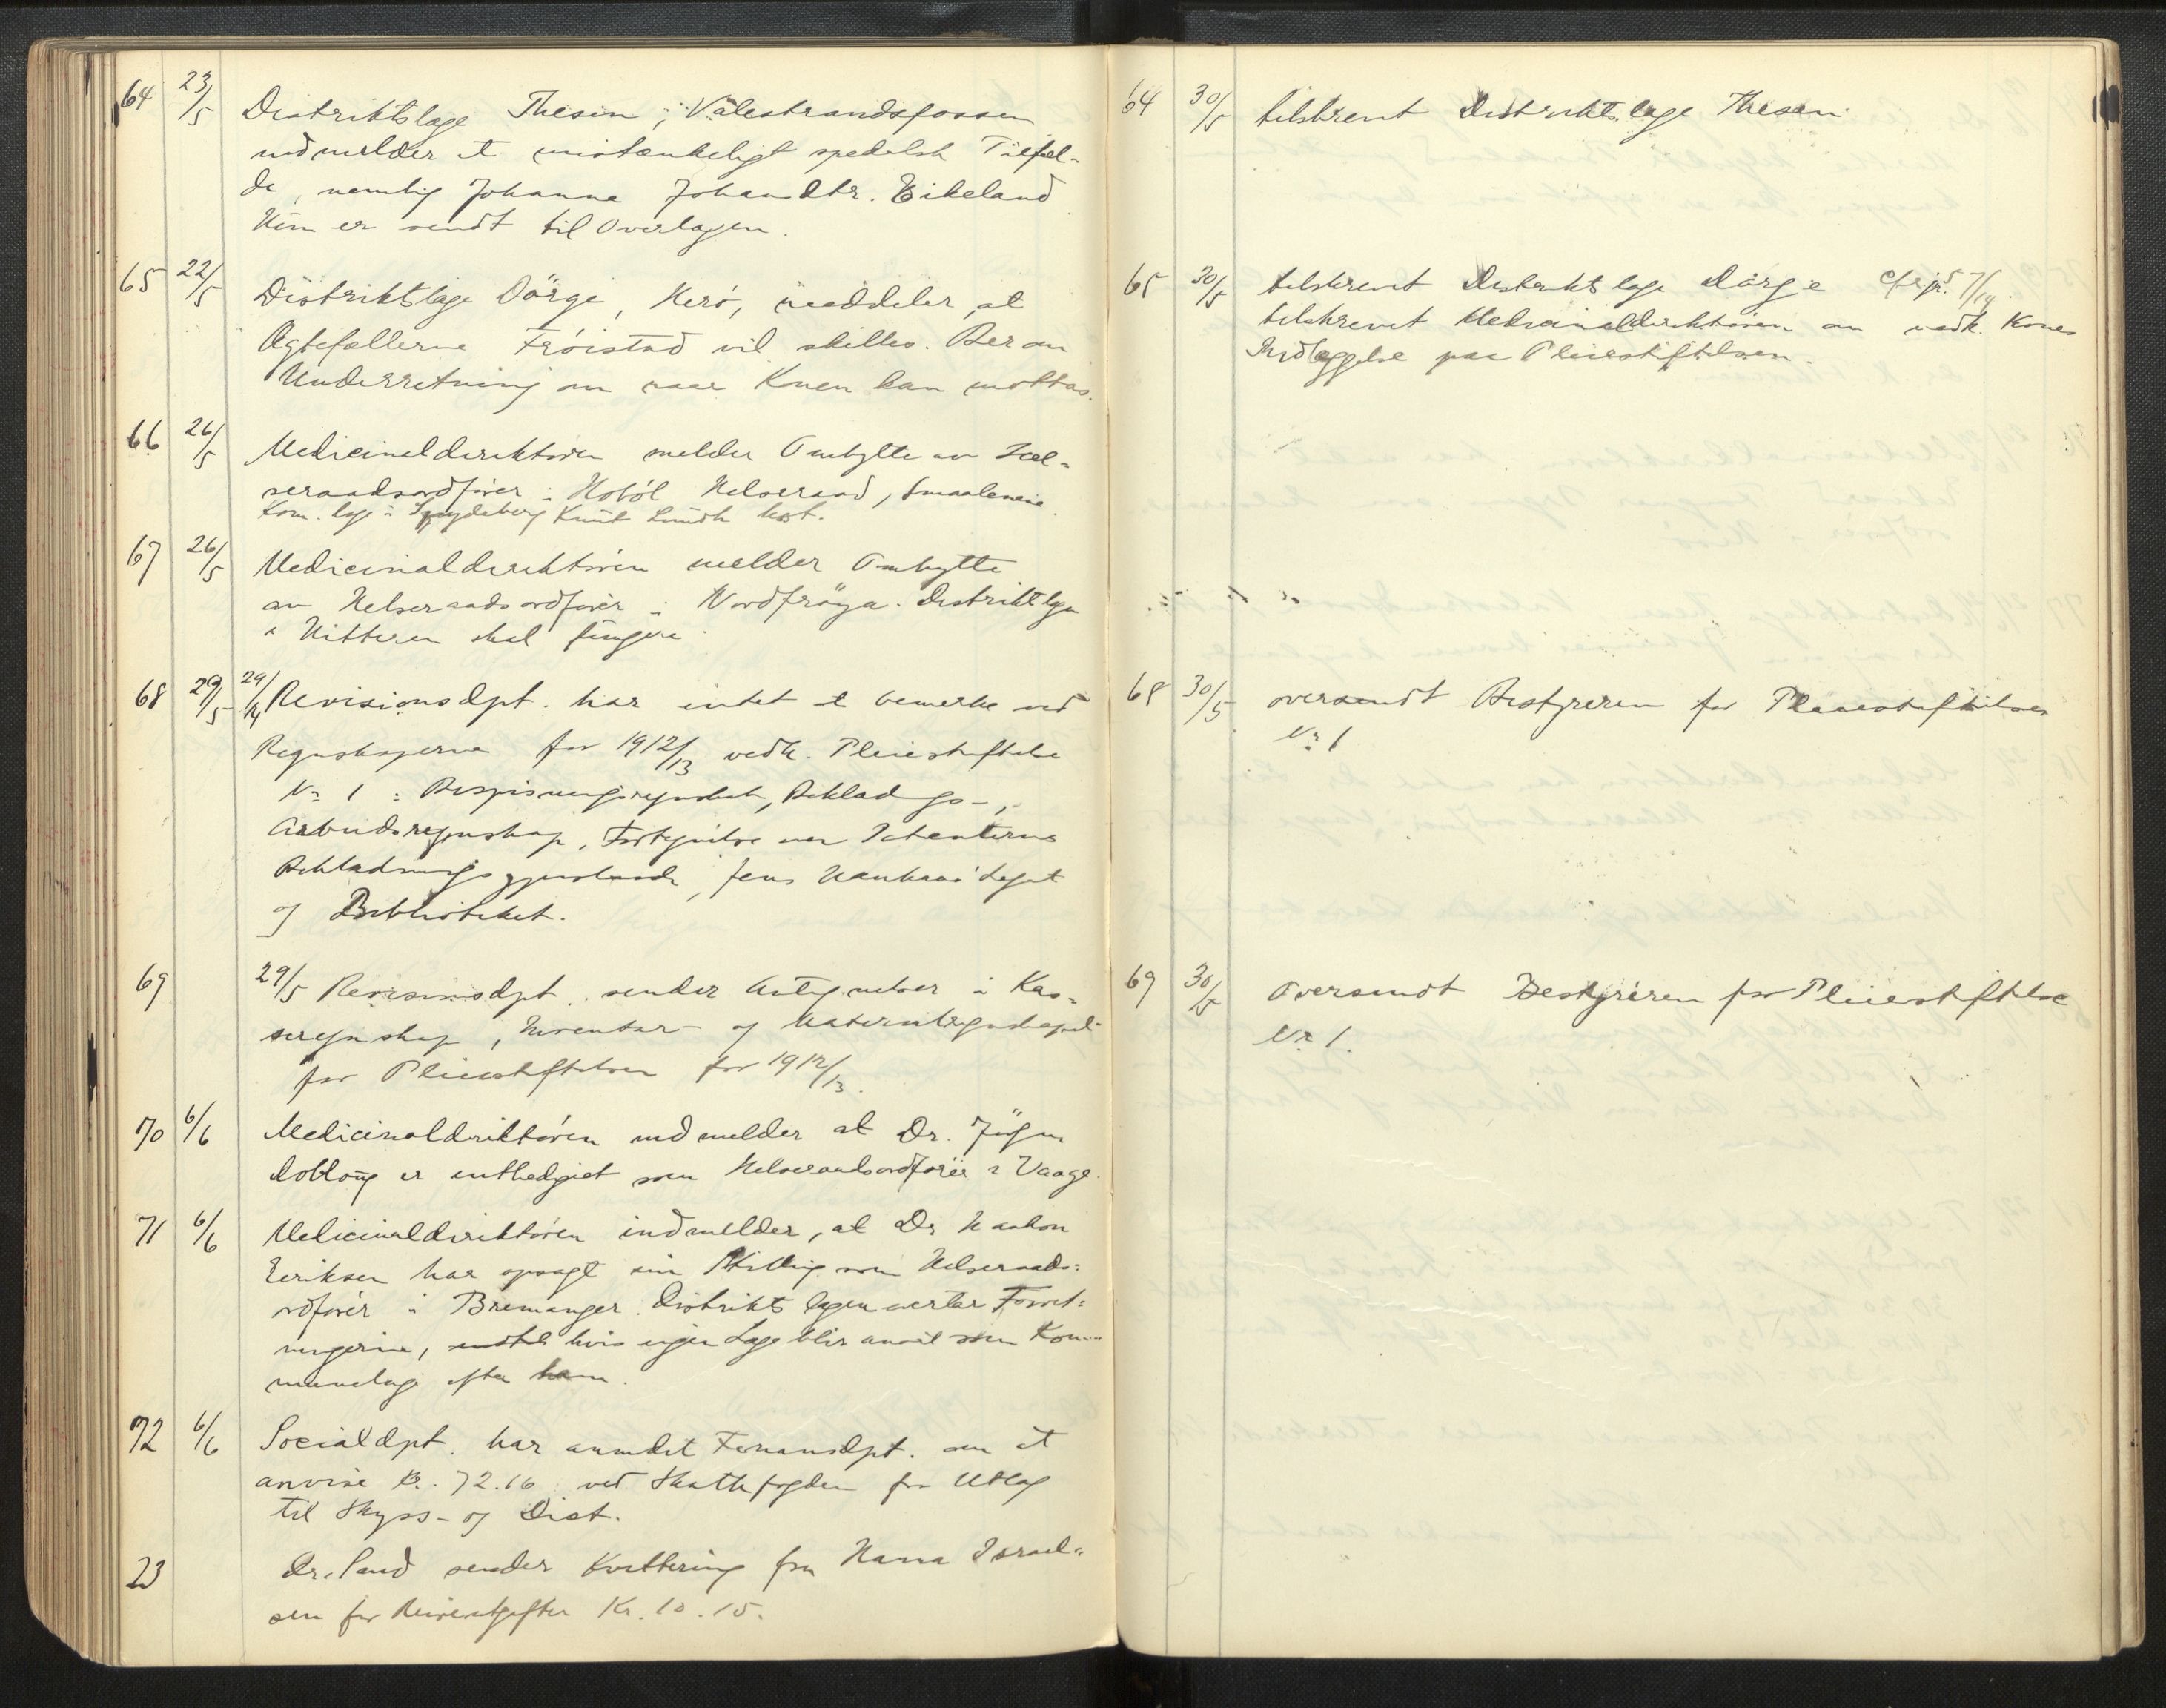 64 23/5 Distriktslæge Thesen, Vålestrandsfossen
indmelder et mistænkeligt spedalsk Tilfæl-
de, nemlig Johanne Johansdtr. Eikeland
Hun er sendt til Overlægen.
65 22/5 Distriktslæge Dörge, Herö, meddeler, at
Ægtefællerne Fröistad vil skilles. Ber om
Underretning om naar Konen kan mottas.
66 26/5 Medicinaldirektören melder Ombytte av Hel-
seraadsordförer i Hoböl Helseraad, Smaalenene
Kom. læge i Spydeberg Knut Lundh kst.
67 26/5 Medicinaldirektören melder Ombytte
av Helseraadsordförer i Nordfröya. Distriktslægen
i Hitteren skal fungere
68 29/5 29/4 Revisionsdpt. har intet at bemerke ved
Regnskaperne for 1912/13 vedk. Pleiestiftelse
No 1 : Bespisningsregnskab, Beklædgs-,
Arbeidsregnskap, Fortegnelse over Patienternes
Beklædningsgjenstande, Jens Legat
og Biblioteket.
69 29/5 Revisionsdpt. sender Antegnelser i Kas-
seregnskap, Inventar- og Materialregnskapet
for Pleiestiftelsen for 1912/13.
70 6/6 Medicinaldirektören indmelder at Dr. Jörgen
Doblong er entlediget som Helseraadsordförer i Vaage.
71 6/6 Medicinaldirektören indmelder, at Dr Haakon
Eeriksen har opsagt sin Stilling som Helseraads-
ordförer i Bremanger. Distriktslægen overtar Forret-
ningerne, hvis ingen Læge blir ansat som Kom-
munelæge efter ham.
72 6/6 Socialdpt. har anmodet Finansdpt. om at
anvise Kr. 72.16 ved Skattefogden for Utlæg
til Skyss- og Diæt.
23 Dr. Sand sender Kvittering fra Hanna Israel-
sen for Reiseutgifter Kr. 10.15.
64 30/5 tilskrevet Distriktslæge Thesen.
65 30/5 tilskrevet Distriktslæge Dörge cfr jr. 7/14.
tilskrevet Medicinaldirektören om vedk. Kones
Indlæggelse paa Pleiestiftelsen.
68 30/5 oversendt Bestyreren for Pleiestiftelsen
No 1
69 30/5 Oversendt Bestyreren for Pleiestiftelse
No 1.